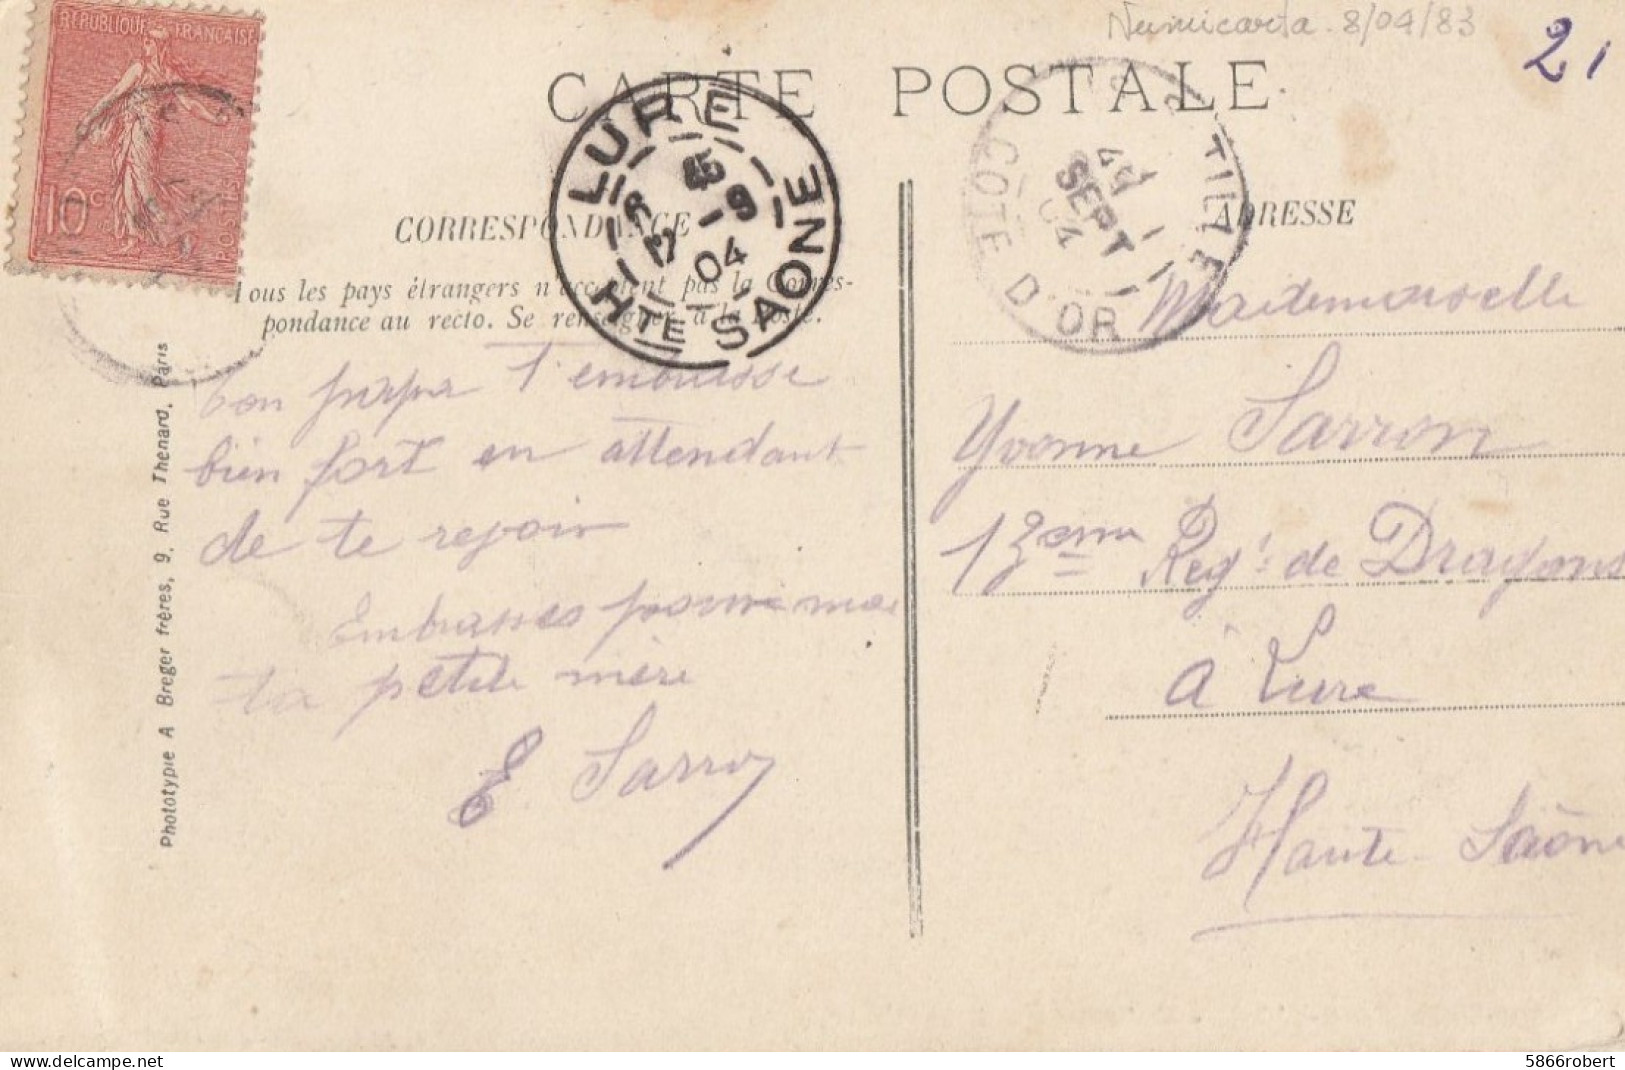 Numicarta. 8/04/83
21
REPUBLIQUE FRANCAISE
10c
POSTES
CARTE POSTALE
LURE
HTE SAONE
5-9
04
SEPT
04
COTE D'OR
CORRESPONDANCE
ADRESSE
Tous les pays étrangers n'acceptent pas la Corres-
pondance au recto. Se renseigner à la Poste.
bon papa T'embrasse
bien fort en attendant
de te revoir
Embrasses pour moi
ta petite mère
E Sarron
Mademoiselle
Yvonne Sarron
13eme Regt de Dragons
à Lure
Haute-Saône
Phototypie A Breger frères, 9, Rue Thenard, Paris
5866robert